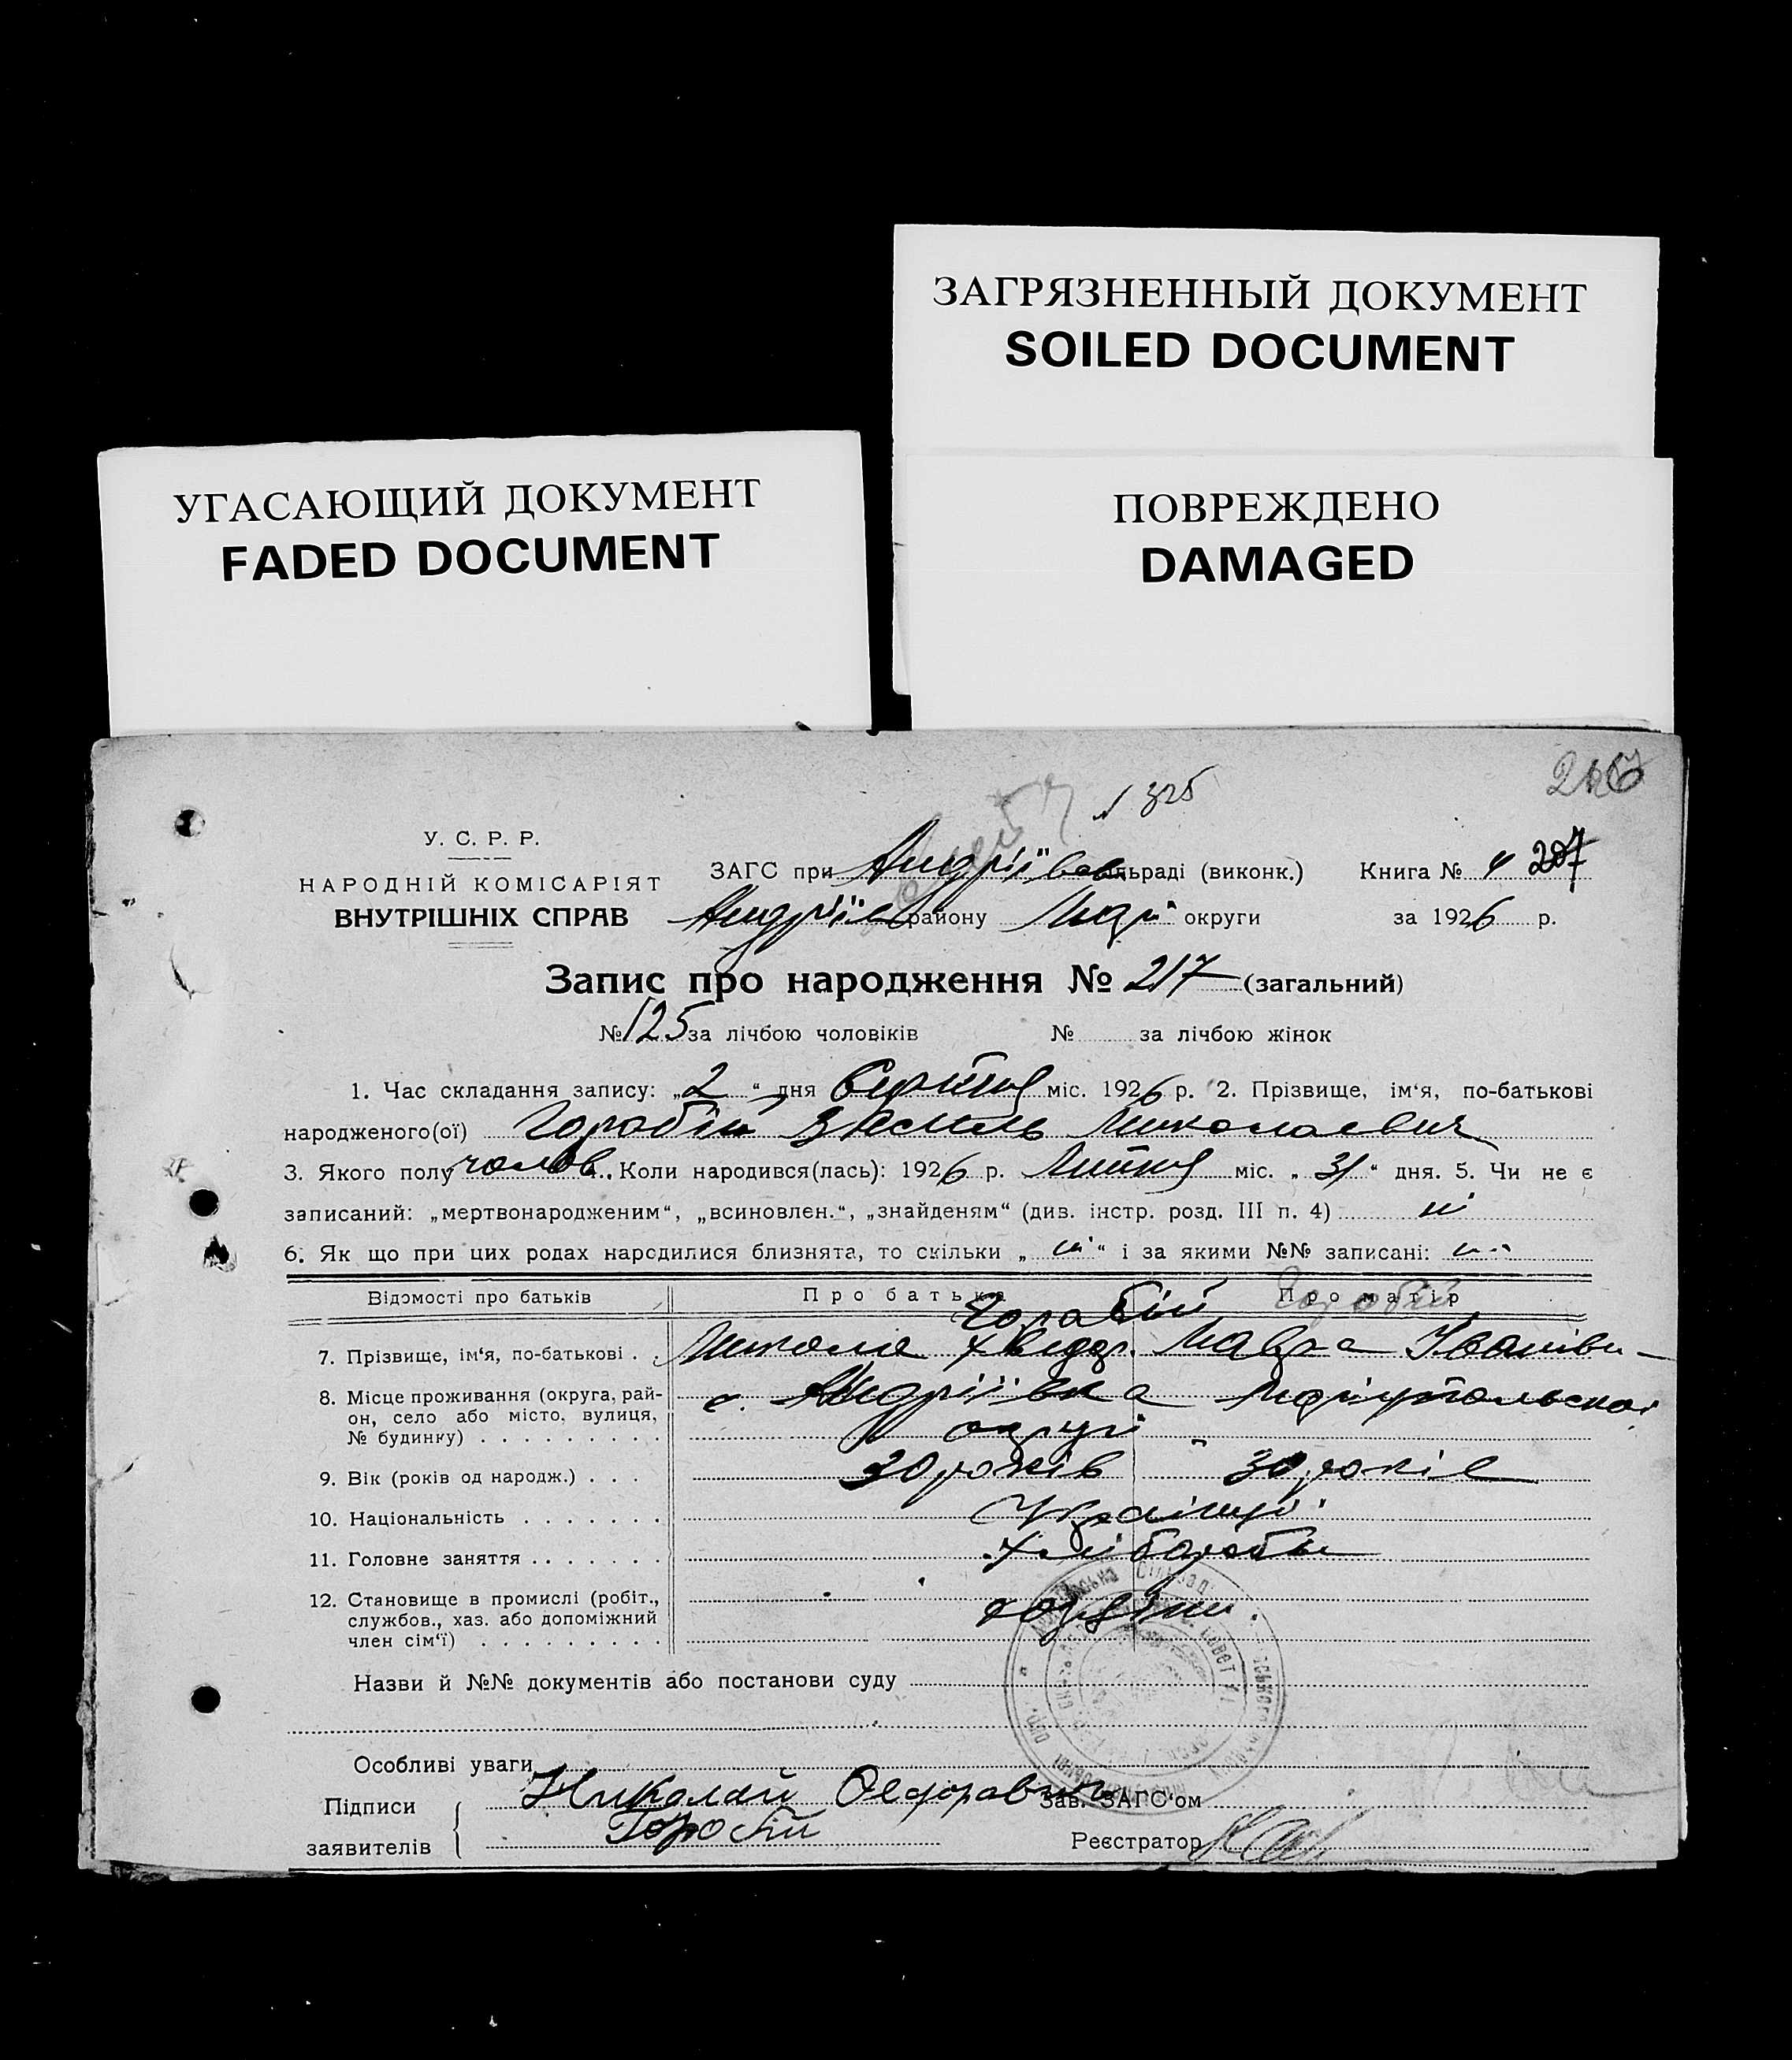 ЗАГРЯЗНЕННЫЙ ДОКУМЕНТ
SOILED DOCUMENT
УГАСАЮЩИЙ ДОКУМЕНТ
FADED DOCUMENT
ПОВРЕЖДЕНО
DAMAGED
325
У. С. Р. Р.
НАРОДНІЙ КОМІСАРІЯТ
ВНУТРІШНІХ СПРАВ
ЗАГС при Андріївс сільраді (виконк.) Книга № 4 207
Андріїв району Мар округи за 1926 р.
Запис про народження № 217 (загальний)
№ 125 за лічбою чоловіків № за лічбою жінок
1. Час складання запису: „2“ дня Серпня міс. 1926 р. 2. Прізвище, ім‘я, по-батькові
народженого(ої) Горобій Василь Миколаевич
3. Якого полу чолов. Коли народився(лась): 1926 р. Липня міс. „31“ дня. 5. Чи не є
записаний: „мертвонародженим“, „всиновлен.“, „знайденям“ (див. інстр. розд. III п. 4) ні
6. Як що при цих родах народилися близнята, то скільки „ні“ і за якими №№ записані:
Відомості про батьків Про батька Про матір
Горобій
7. Прізвище, ім‘я, по-батькові . . Микола Хведор. Мавра Іванівн
8. Місце проживання (округа, рай- с. Андріївка Маріупольскоі
он, село або місто, вулиця,
№ будинку) . . . . . . . . . округі
9. Вік (років од народж.) . . . 30 років 30 років
10. Національність . . . . . . . Украінці
11. Головне заняття . . . . . . . Хлібороби
12. Становище в промислі (робіт.,
службов., хаз. або допоміжний
член сім‘ї) . . . . . . . . .
Назви й №№ документів або постанови суду
Особливі уваги
Підписи Николай Федоравич Зав. ЗАГС‘ом
заявителів Горобій Реєстратор